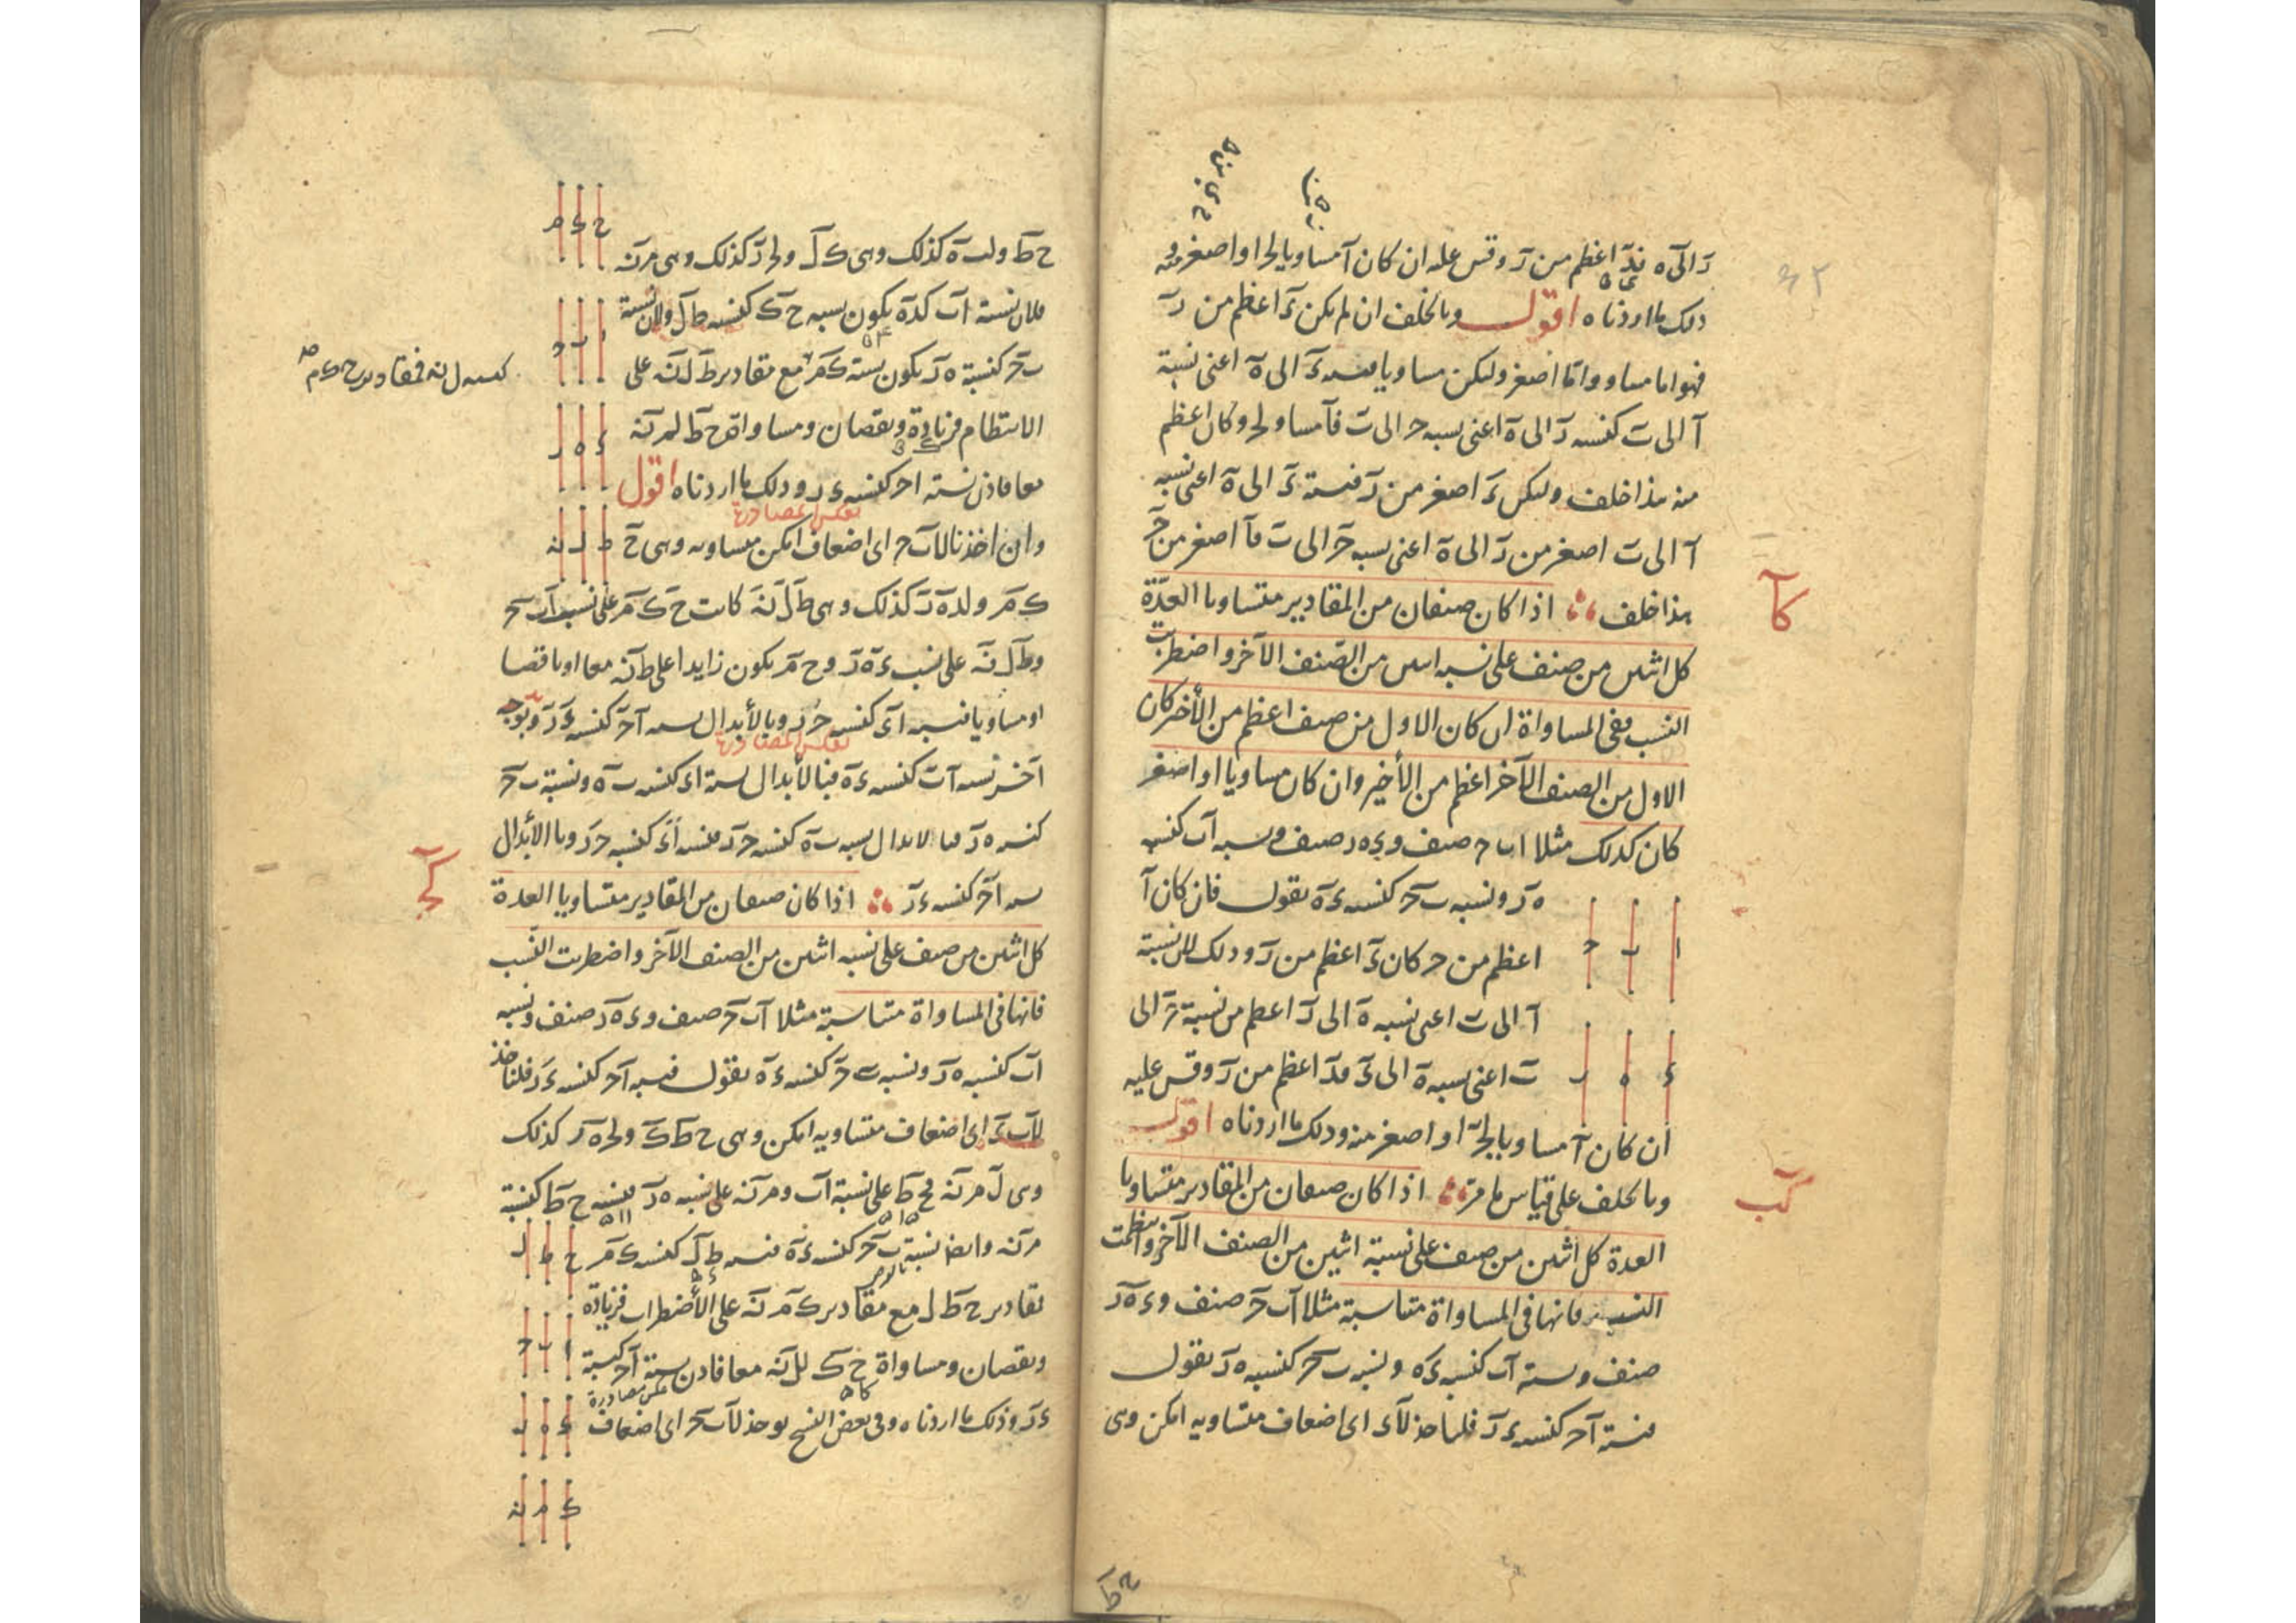 د الى ه فد اعظم من ر وقس عليه ان كان ا مساويا لحـ او اصغر منه
ذلك ما اردناه اقول وبالخلف ان لم يكن ء اعظم من ر
فهو اما مساو واما اصغر وليكن مساويا فنسبة ء الى ه اعنى نسبة
ا الى ب كنسبة ر الى ه اعنى نسبة حـ الى ب فا مساو لحـ وكان اعظم
منه هذا خلف وليكن ء اصغر من ر فنسبة ء الى ه اعنى نسبة
ا الى ب اصغر من ر الى ه اعنى نسبة حـ الى ب فا اصغر من حـ
كا
هذا خلف اذا كان صنفان من المقادير متساويا العدة
كل اثنين من صنف على نسبة اثنين من الصنف الآخر واضطربت
النسب ففى المساواة ان كان الاول من صنف اعظم من الأخير كان
الاول من الصنف الآخر اعظم من الأخير وان كان مساويا او اصغر
كان كذلك مثلا ا ب حـ صنف و ء ه ر صنف ونسبة ا ب كنسبة
ه ر ونسبة ب حـ كنسبة ء ه نقول فان كان ا
ا ب حـ
اعظم من حـ كان ء اعظم من ر وذلك لان نسبة
ا الى ب اعنى نسبة ه الى ر اعظم من نسبة حـ الى
ء ه ر
ب اعنى نسبة ه الى ء فد اعظم من ر وقس عليه
ان كان ا مساويا لحـ او اصغر منه وذلك ما اردناه اقول
كب
وبالخلف على قياس ما مر اذا كان صنفان من المقادير متساويا
العدة كل اثنين من صنف على نسبة اثنين من الصنف الآخر وانتظمت
النسب فانها فى المساواة متناسبة مثلا ا ب حـ صنف و ء ه ر
صنف ونسبة ا ب كنسبة ء ه ونسبة ب حـ كنسبة ه ر نقول
فنسبة ا حـ كنسبة ء ر فلناخذ لا ء اى اضعاف متساويه امكن وهى
ح ط
ح ء م
ح ط ولب ه كذلك وهى ك ل ولحـ ر كذلك وهى م ن
فلان نسبة ا ب كء ه يكون نسبة ح ك كنسبة ط ل ولان نسبة
ا ب حـ
ب حـ كنسبة ه ر يكون نسبة ك م مع مقادير ط ل ن على
كنسبة ل ن فمقادير ح ك م
الانتظام فزيادة ونقصان ومساواة ح ط لم ن
ء ه ر
معا فاذن نسبة ا حـ كنسبة ء ر وذلك ما اردناه اقول
وان اخذنا لا ب حـ اى اضعاف امكن متساويه وهى ح
ط ل ن
ك م ولء ه ر كذلك وهى ط ل ن كانت ح ك م على نسب ا ب حـ
وط ل ن على نسب ء ه ر و ح م يكون زايدا على ط ن معا او ناقصا
او مساويا فنسبة ا ء كنسبة حـ ر وبالأبدال نسبة ا حـ كنسبة ء ر وبوجه
آخر نسبة ا ب كنسبة ء ه فبالأبدال نسبة ا ء كنسبة ب ه ونسبة ب حـ
كنسبة ه ر فبالابدال نسبة ب ه كنسبة حـ ر فنسبة ا ء كنسبة حـ ر وبالأبدال
كج
نسبة ا حـ كنسبة ء ر اذا كان صنفان من المقادير متساويا العدة
كل اثنين من صنف على نسبة اثنين من الصنف الآخر واضطربت النسب
فانها فى المساواة متناسبة مثلا ا ب حـ صنف و ء ه ر صنف ونسبة
ا ب كنسبة ه ر ونسبة ب حـ كنسبة ء ه نقول فنسبة ا حـ كنسبة ء ر فلناخذ
لا ب ء اى اضعاف متساويه امكن وهى ح ط ك ولحـ ه ر كذلك
وهى ل م ن فح ط على نسبة ا ب وم ن على نسبة ه ر فنسبة ح ط كنسبة
م ن وايضا نسبة ب حـ كنسبة ء ه فنسبة ط ل كنسبة ك م
ح ط ل
فمقادير ح ط ل مع مقادير ك م ن على الأضطراب فزيادة
ا ب حـ
ونقصان ومساواة ح ك لل ن معا فاذن نسبة ا حـ كنسبة
ء ر وذلك ما اردناه وفى بعض النسخ يوخذ لا ب حـ اى اضعاف
ء ه ر
ك م ن